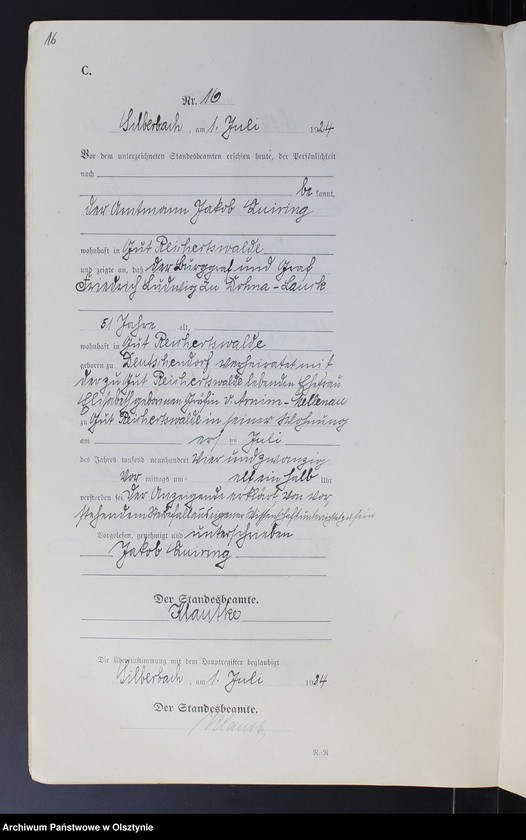 16
C.
Nr. 16
Silberbach, am 1. Juli 1924
Vor dem unterzeichneten Standesbeamten erschien heute, der Persönlichkeit
nach
bekannt,
der Amtmann Jakob
wohnhaft in Gut Reichertswalde
und zeigte an, daß der Burggraf und Graf
Friedrich Ludwig zu Dohna-Lauck
51 Jahre alt,
wohnhaft in Gut Reichertswalde
geboren zu Deutschendorf verheiratet mit
der zu Gut Reichertswalde lebenden Ehefrau
Elisabeth geborenen Gräfin v. Arnim-Mellenau
zu Gut Reichertswalde in seiner Wohnung
am ersten Juli
des Jahres tausend neunhundert vier und zwanzig
Vor mittags um elf ein halb Uhr
verstorben sei. Der Anzeigende erklärt von vor
stehendem Sterbefalle aus eigener Wissenschaft unterrichtet zu sein
Vorgelesen, genehmigt und unterschrieben
Jakob
Der Standesbeamte.
Klautke
Die Übereinstimmung mit dem Hauptregister beglaubigt
Silberbach, am 1. Juli 1924
Der Standesbeamte.
Klautke
R.-R
Archiwum Państwowe w Olsztynie